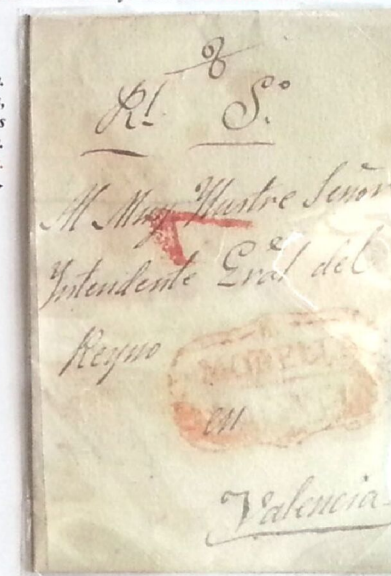 Rl. So.
Al Muy Illustre Señor
Yntendente Gral del
Reyno
MORELLA
en
Valencia